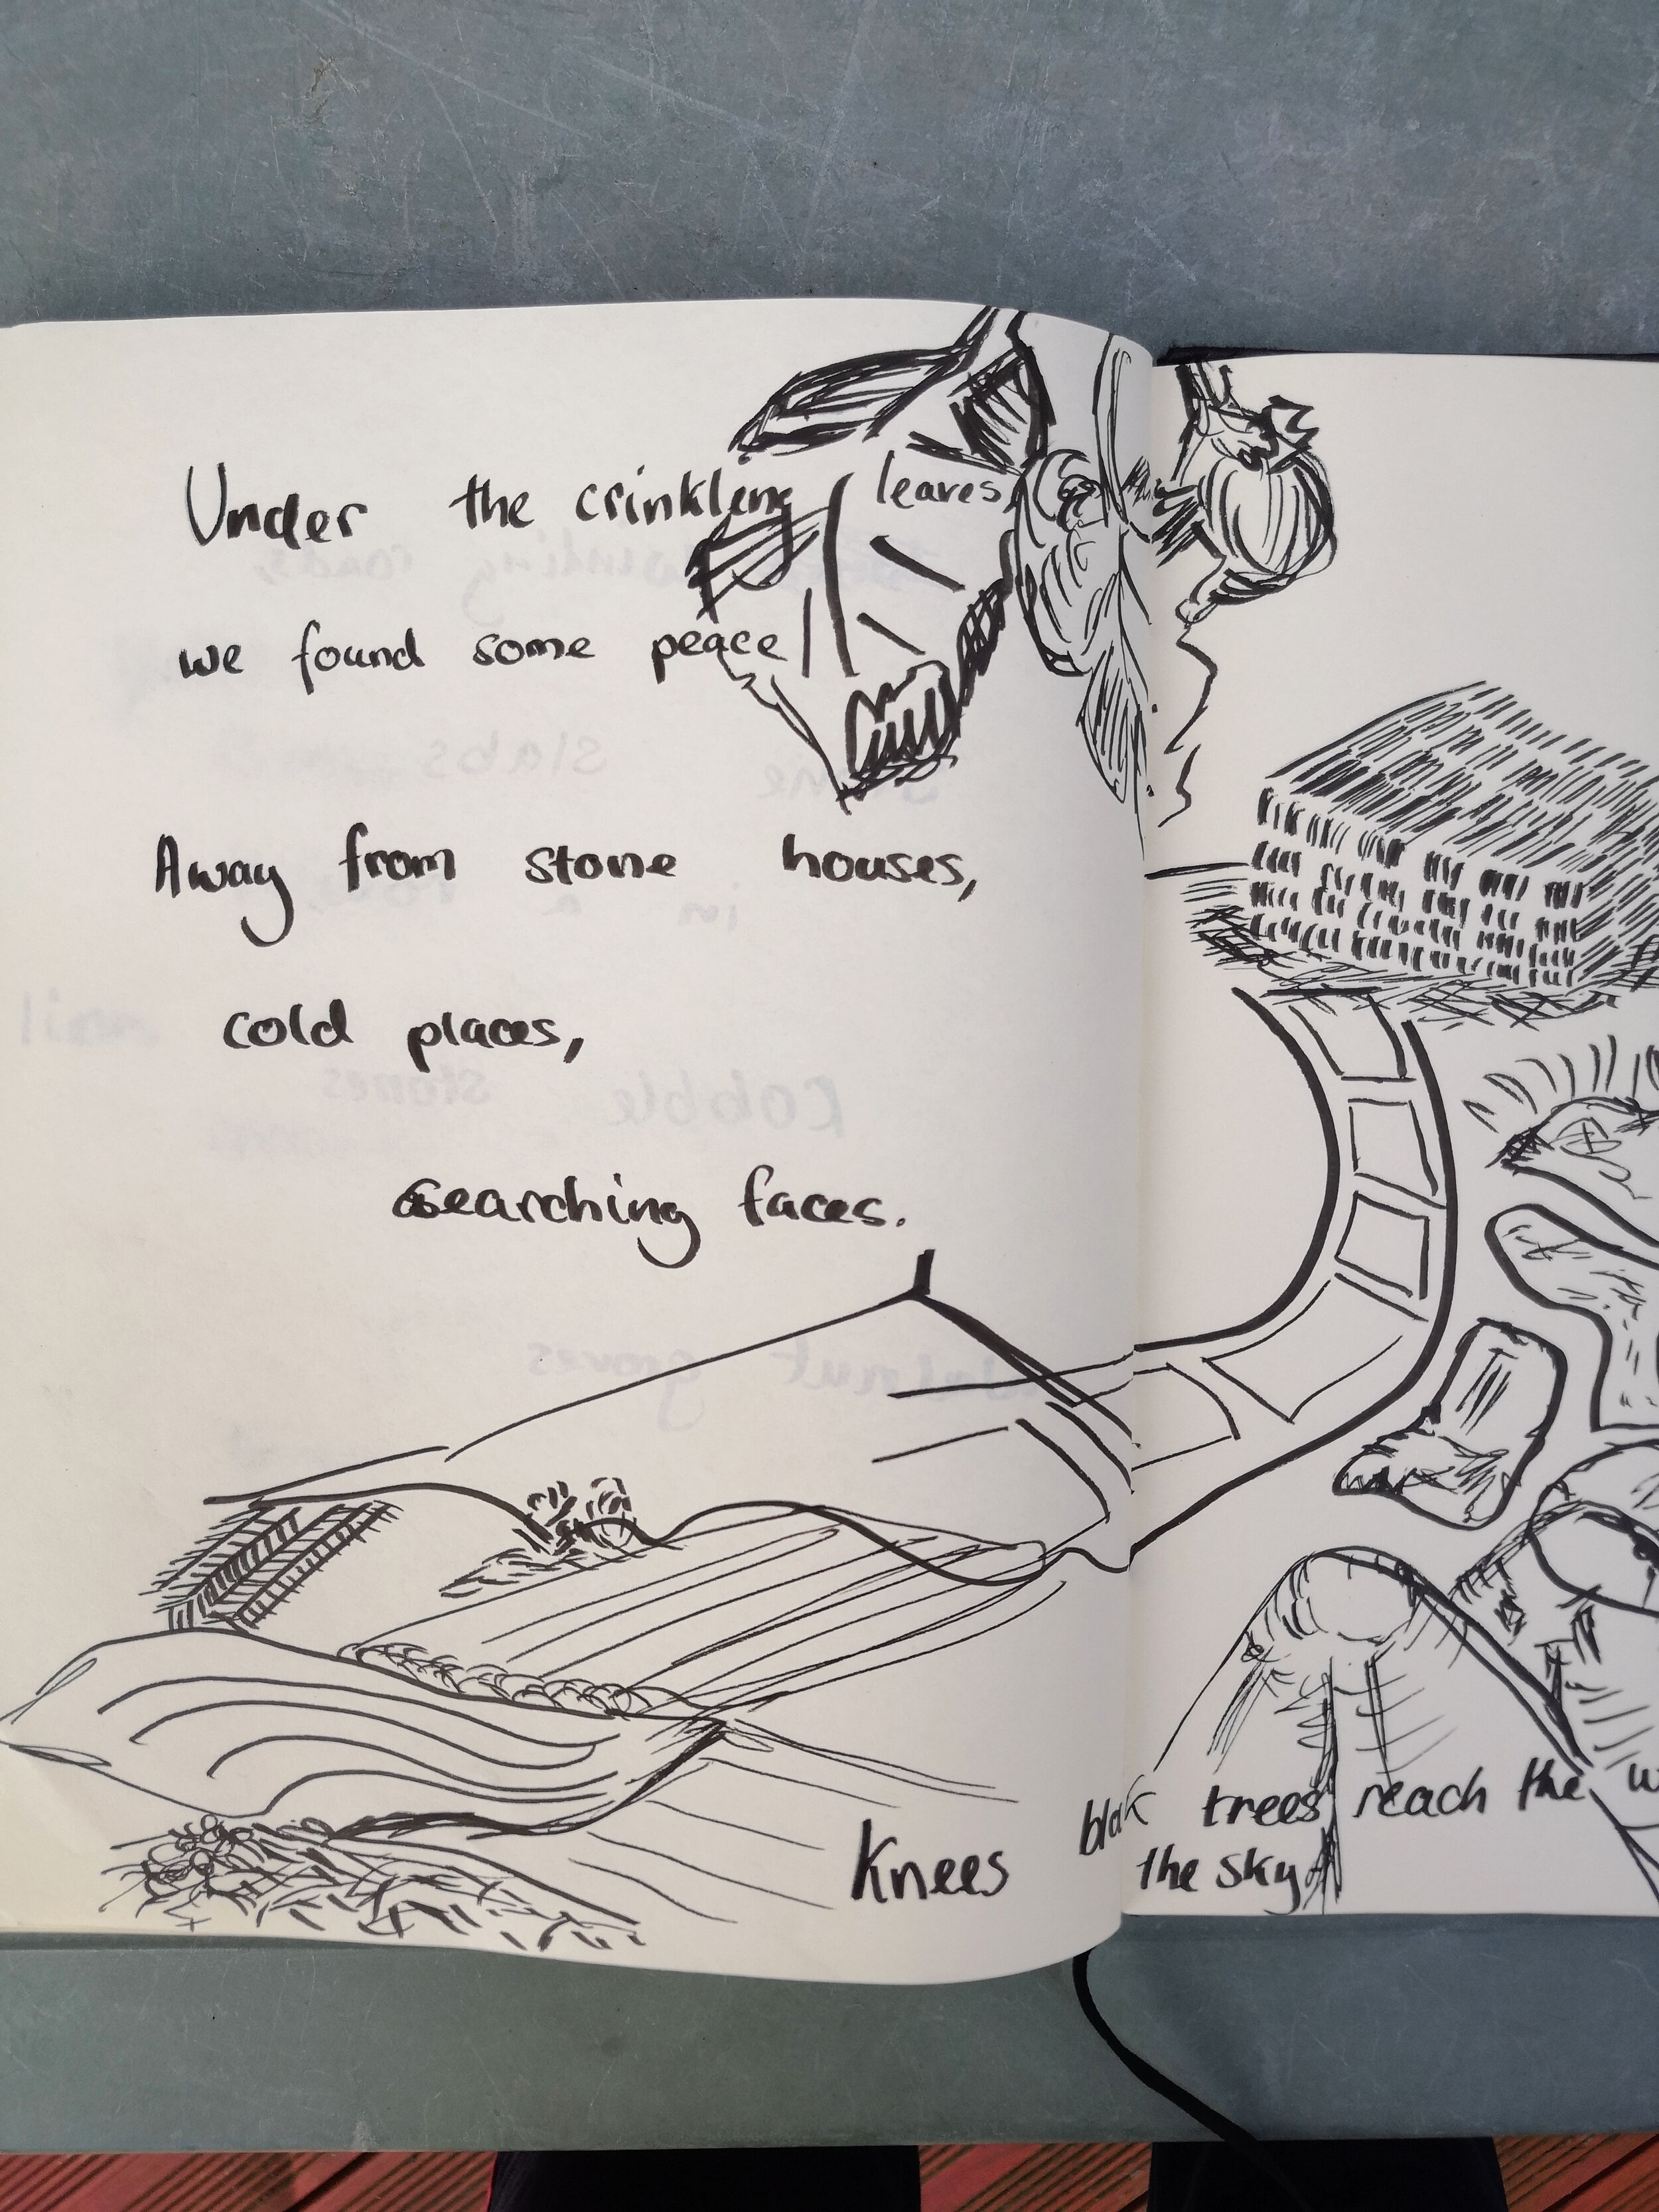 Under the crinkling leaves
we found some peace
Away from stone houses,
cold places,
searching faces.
Knees
blak trees reach the
the sky